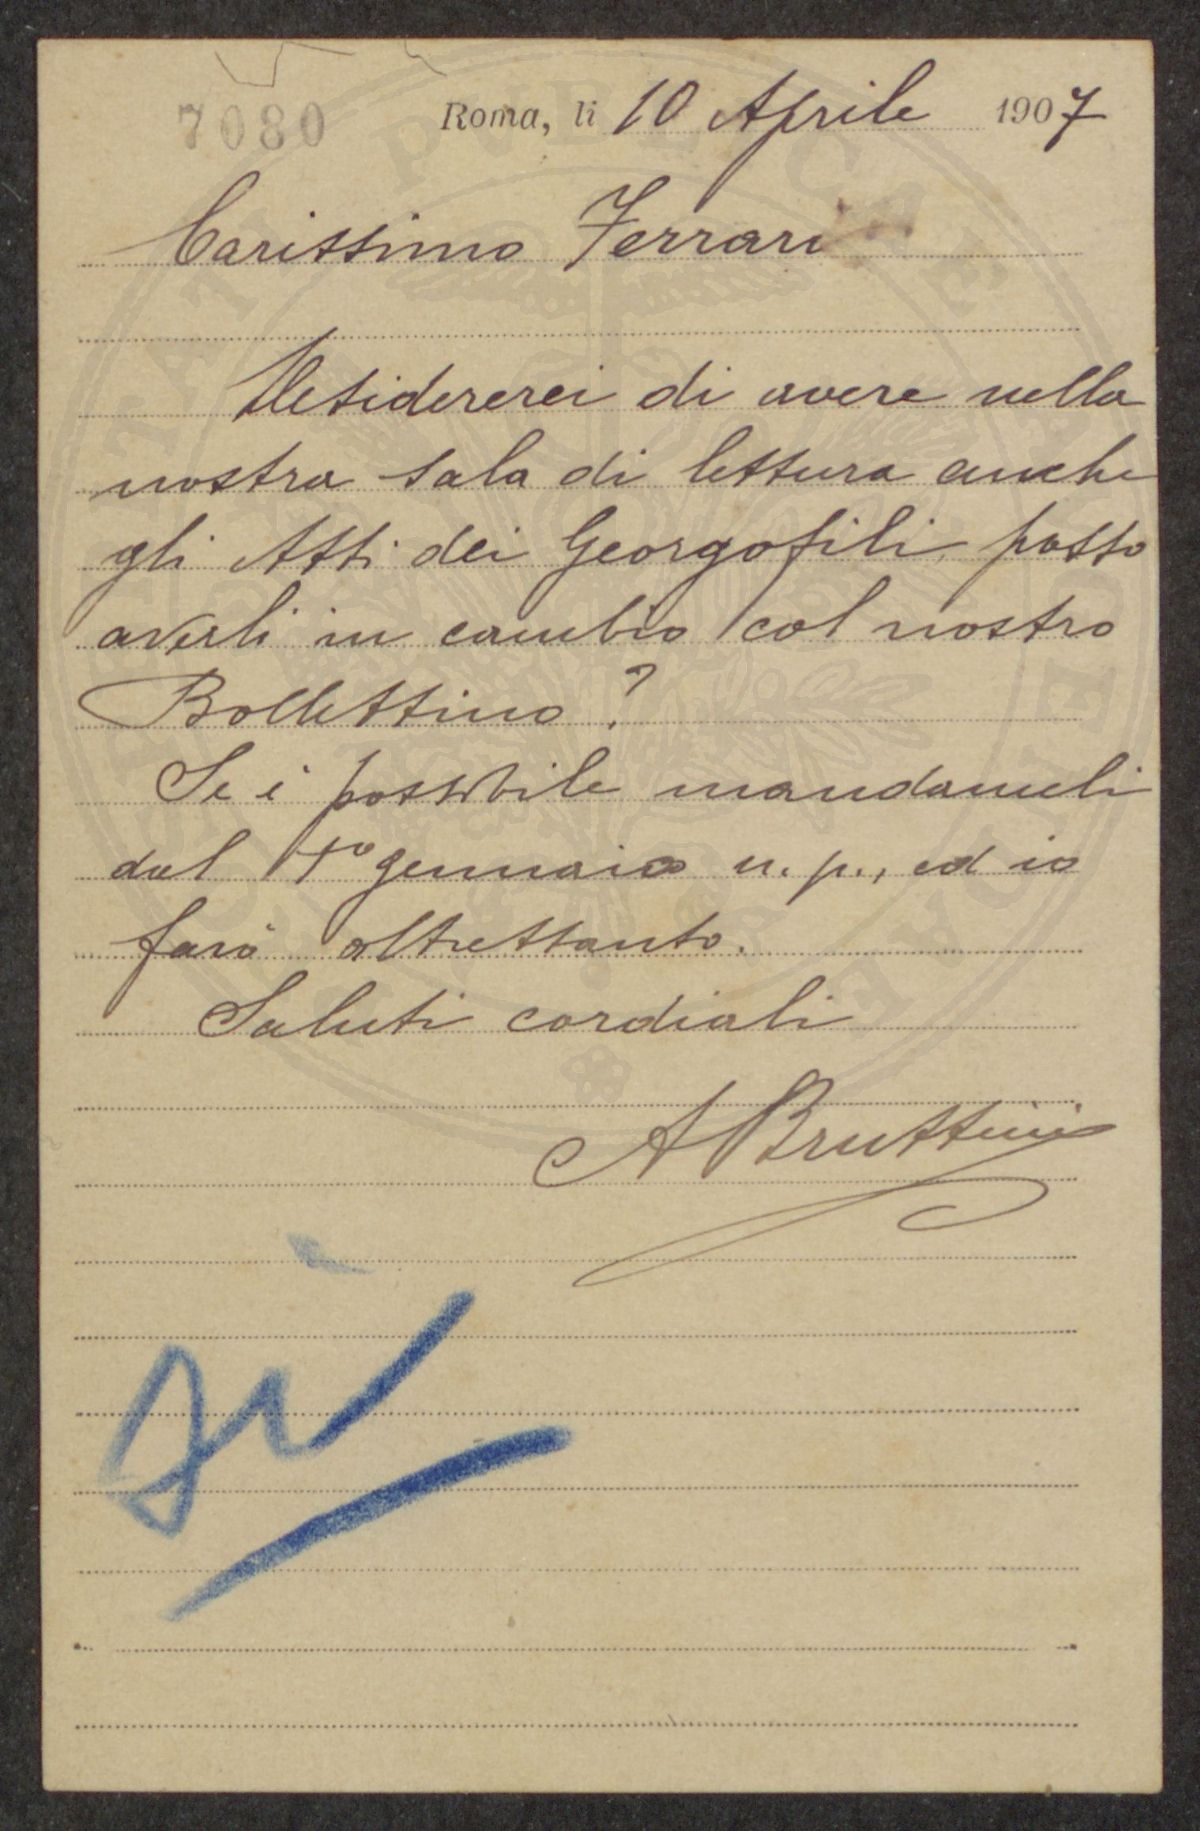 7080
Roma, li 10 Aprile 1907
Carissimo Ferrari
Desidererei di avere nella
nostra sala di lettura anche
gli Atti dei Georgofili, posso
averli in cambio col nostro
Bollettino?
Se è possibile mandameli
dal 1° gennaio u. p., ed io
farò altrettanto.
Saluti cordiali
A Bruttini
sì